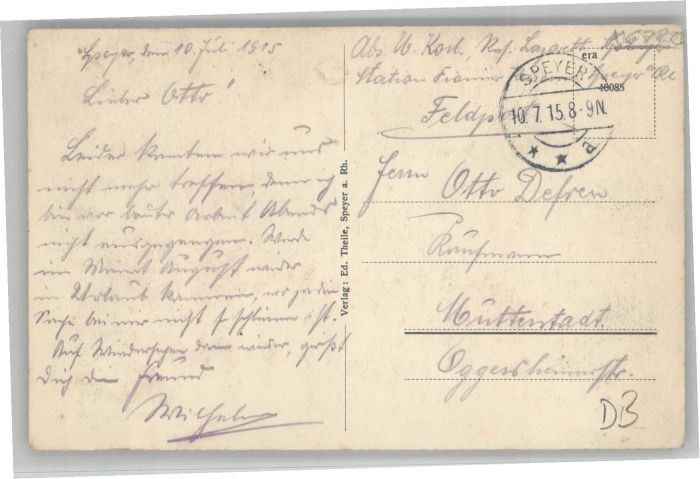 Speyer, den 10. Juli 1915
Lieber Otto!
Leider konnten wir uns
nicht mehr treffen, denn ich
bin vor lauter Arbeit Abends
nicht ausgegangen. Werde
im Monat August wieder
in Urlaub kommen, wo ja die
Sache bei mir nicht so schlimm ist.
Auf Wiedersehen dann wieder, grüßt
Dich Dein Freund
Wilhelm
Verlag: Ed. Theile, Speyer a. Rh.
K6720
Abs. U. Korl, Res. Lazarett
Station Speyer a/Rh
era
40085
SPEYER
10.7.15.8-9N.
Feldpost
Herrn
Otto Defren
Kaufmann
Muttenstadt.
Oggersheimerstr.
DB